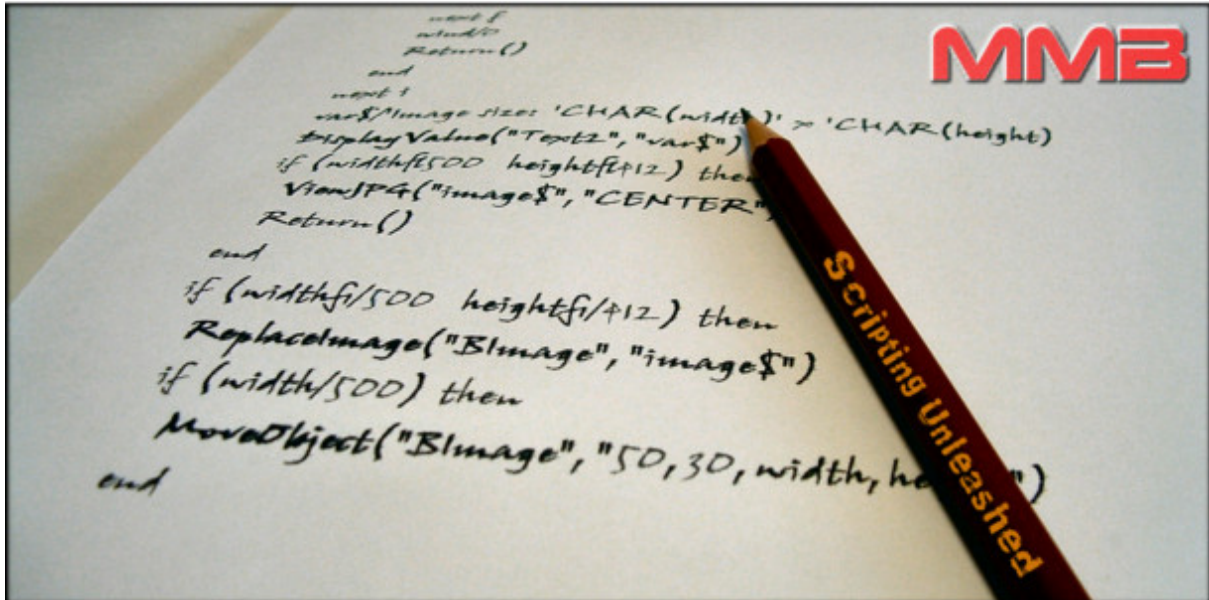 MMB
next f
wind/0
Return()
end
next i
var$/'Image size: 'CHAR(width)' > 'CHAR(height)
DisplayValue("Text2","var$")
if (widthft500 heightft412) then
ViewJPG("image$","CENTER")
Return()
end
if (widthfi/500 heightfi/412) then
ReplaceImage("BImage","image$")
if (width/500) then
MoveObject("BImage","50,30,width,he ")
end
Scripting Unleashed